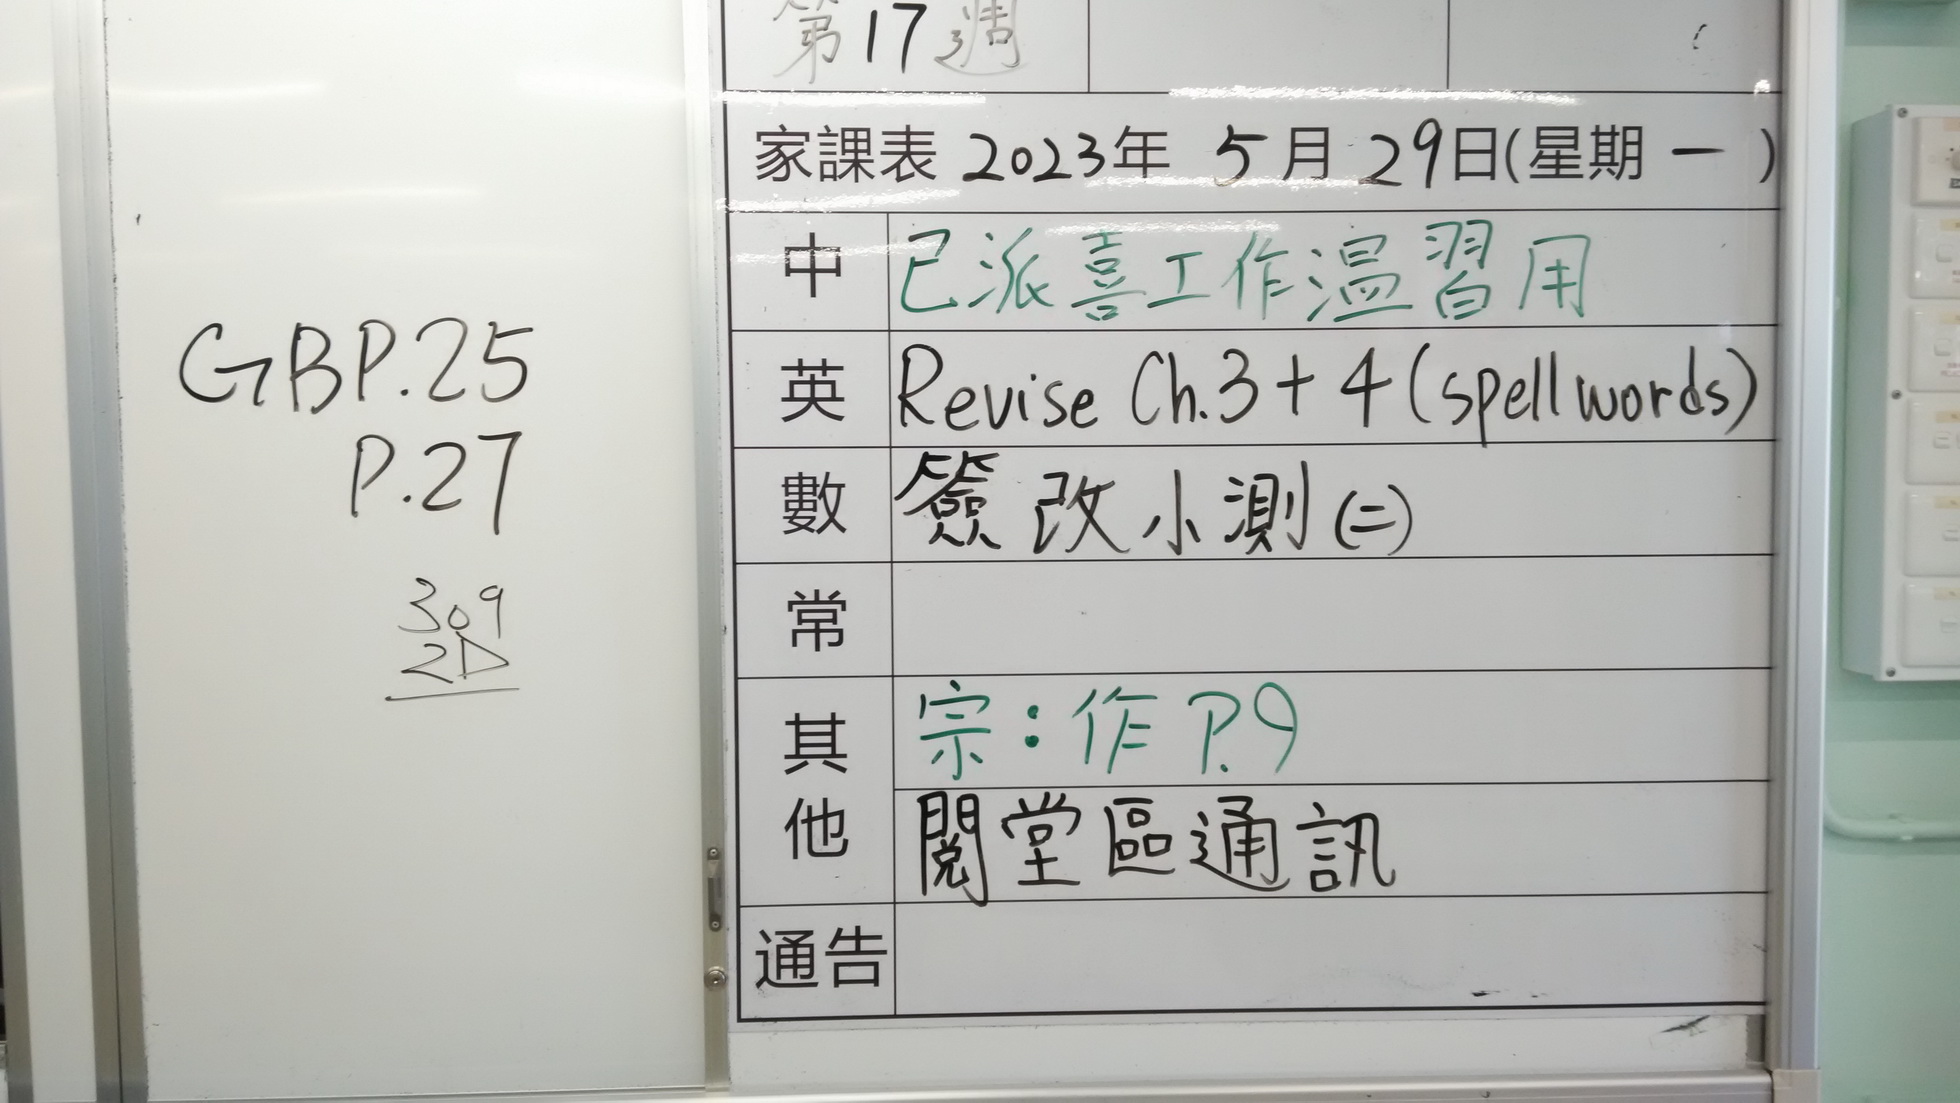 GBP.25
P.27
309
2D
第17週
家課表 2023年 5月29日(星期一)
中 已派喜工作温習用
英 Revise Ch.3+4(spell words)
數 簽改小測(二)
常
其他 宗:作P.9
閱堂區通訊
通告